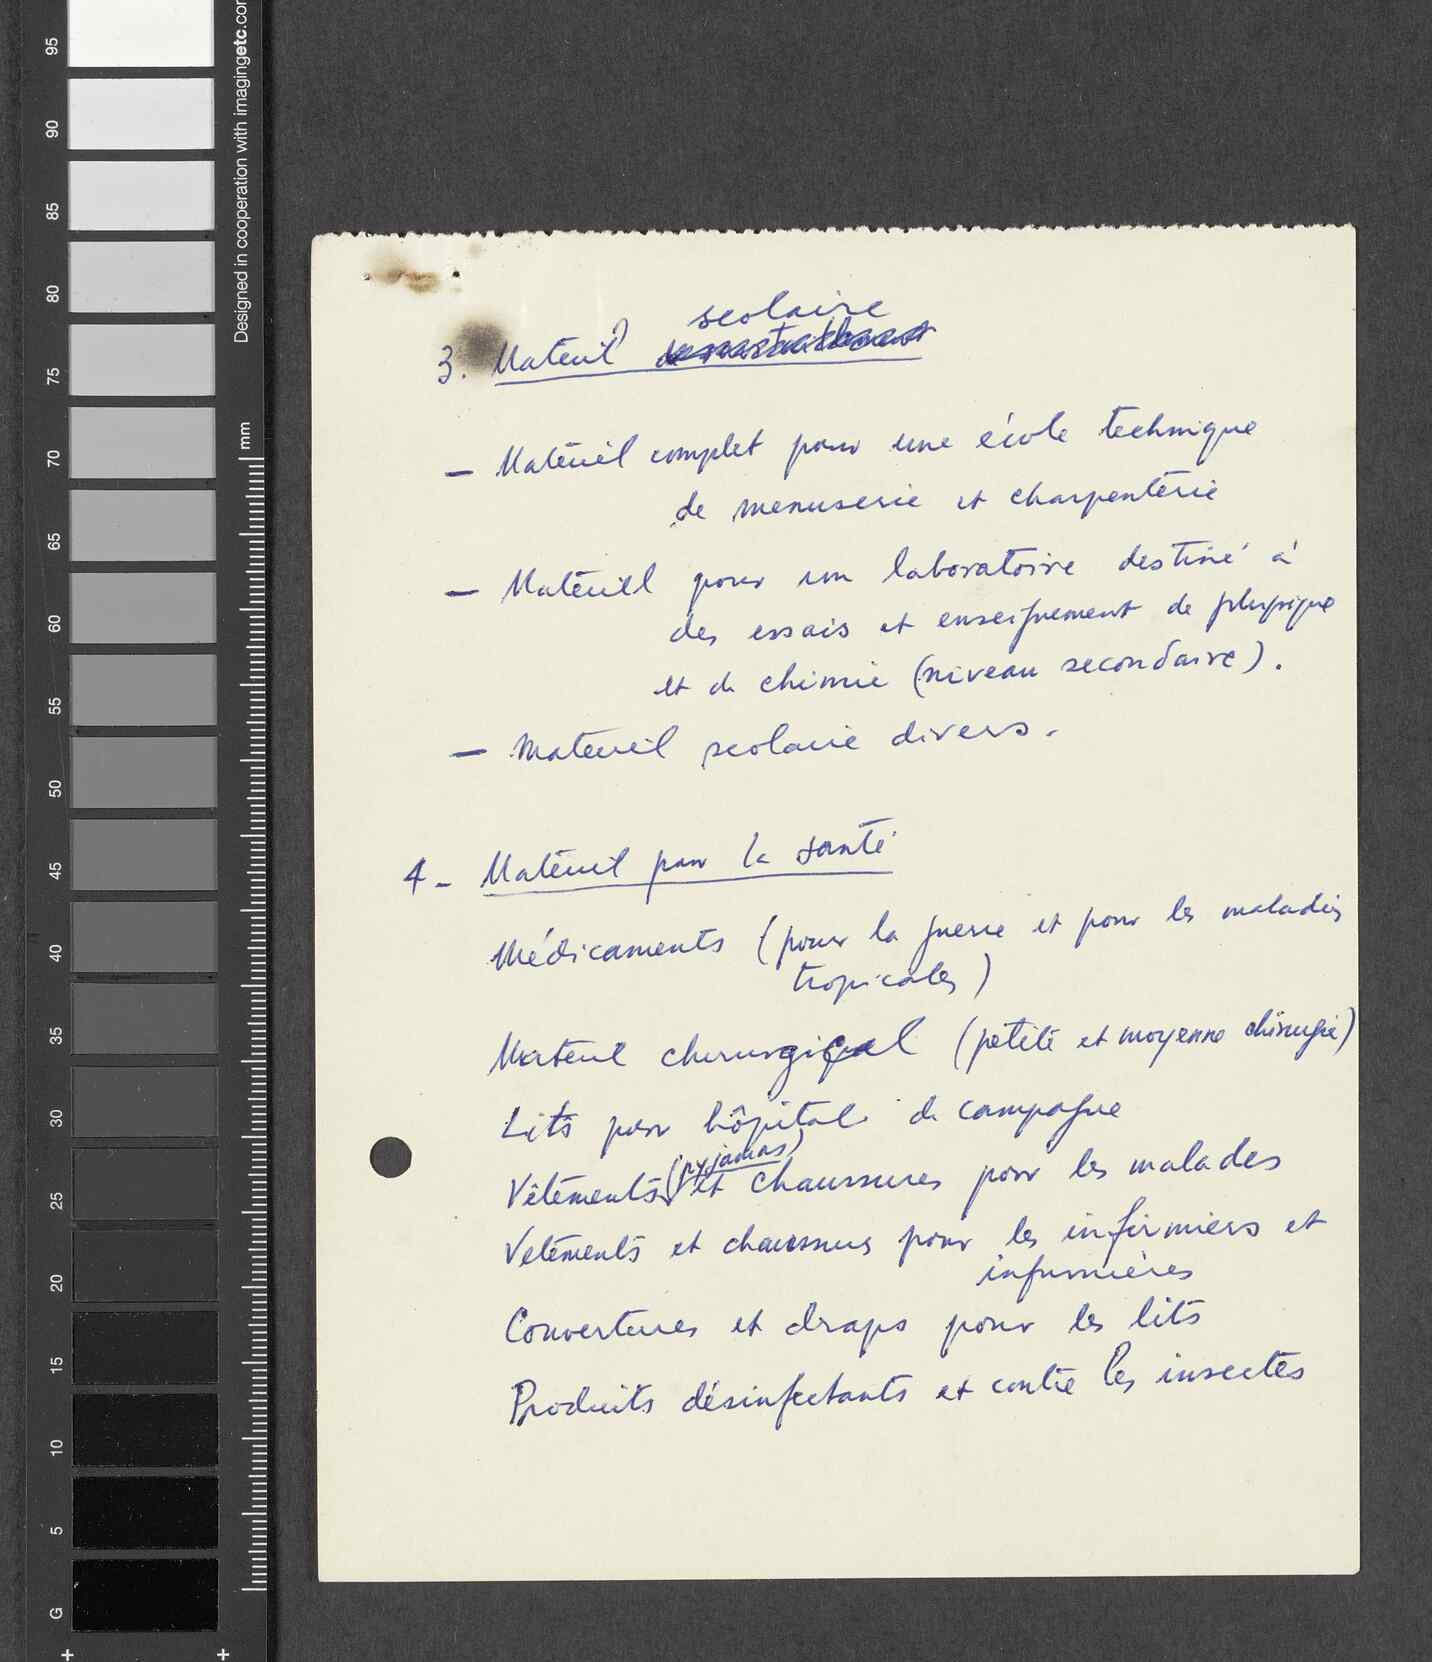 95
90
85
80
75
70
65
60
55
50
45
40
35
30
25
20
15
10
5
G
Designed in cooperation with imagingetc.com
mm
scolaire
3. Matériel
— Matériel complet pour une école technique
de menuserie et charpenterie
— Matériel pour un laboratoire destiné à
des essais et enseignement de physique
et de chimie (niveau secondaire).
— Materiel scolaire divers.
4 - Matériel pour la santé
Médicaments (pour la guerre et pour les maladies
tropicales)
Materiel chirurgical (petite et moyenne chirurgie)
Lits pour hôpital de campagne
(pyjamas)
Vêtements et chaussures pour les malades
Vetements et chaussures pour les infirmiers et
infirmières
Couvertures et draps pour les lits
Produits désinfectants et contre les insectes